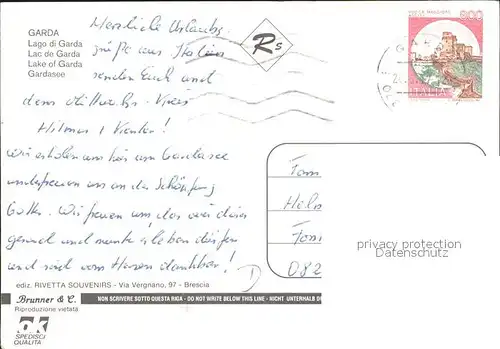 GARDA
Lago di Garda
Lac de Garde
Lake of Garda
Gardasee
Herzliche Urlaubs-
grüße aus Italien
senden Euch und
dem Mittwochs-Kreis
Hilmar
Wir erholen uns hier am Gardasee
und freuen uns an der Schöpfung
Gottes. Wir freuen uns, das wir dies
gesund und munter erleben dürfen
und sind vom Herzen dankbar!
Rs
800
ITALIA
Fam
Fam
082
privacy protection
Datenschutz
ediz. RIVETTA SOUVENIRS - Via Vergnano, 97 - Brescia
Brunner & C.
Riproduzione vietata
NON SCRIVERE SOTTO QUESTA RIGA - DO NOT WRITE BELOW THIS LINE - NICHT UNTERHALB D
SPEDISCI
QUALITA